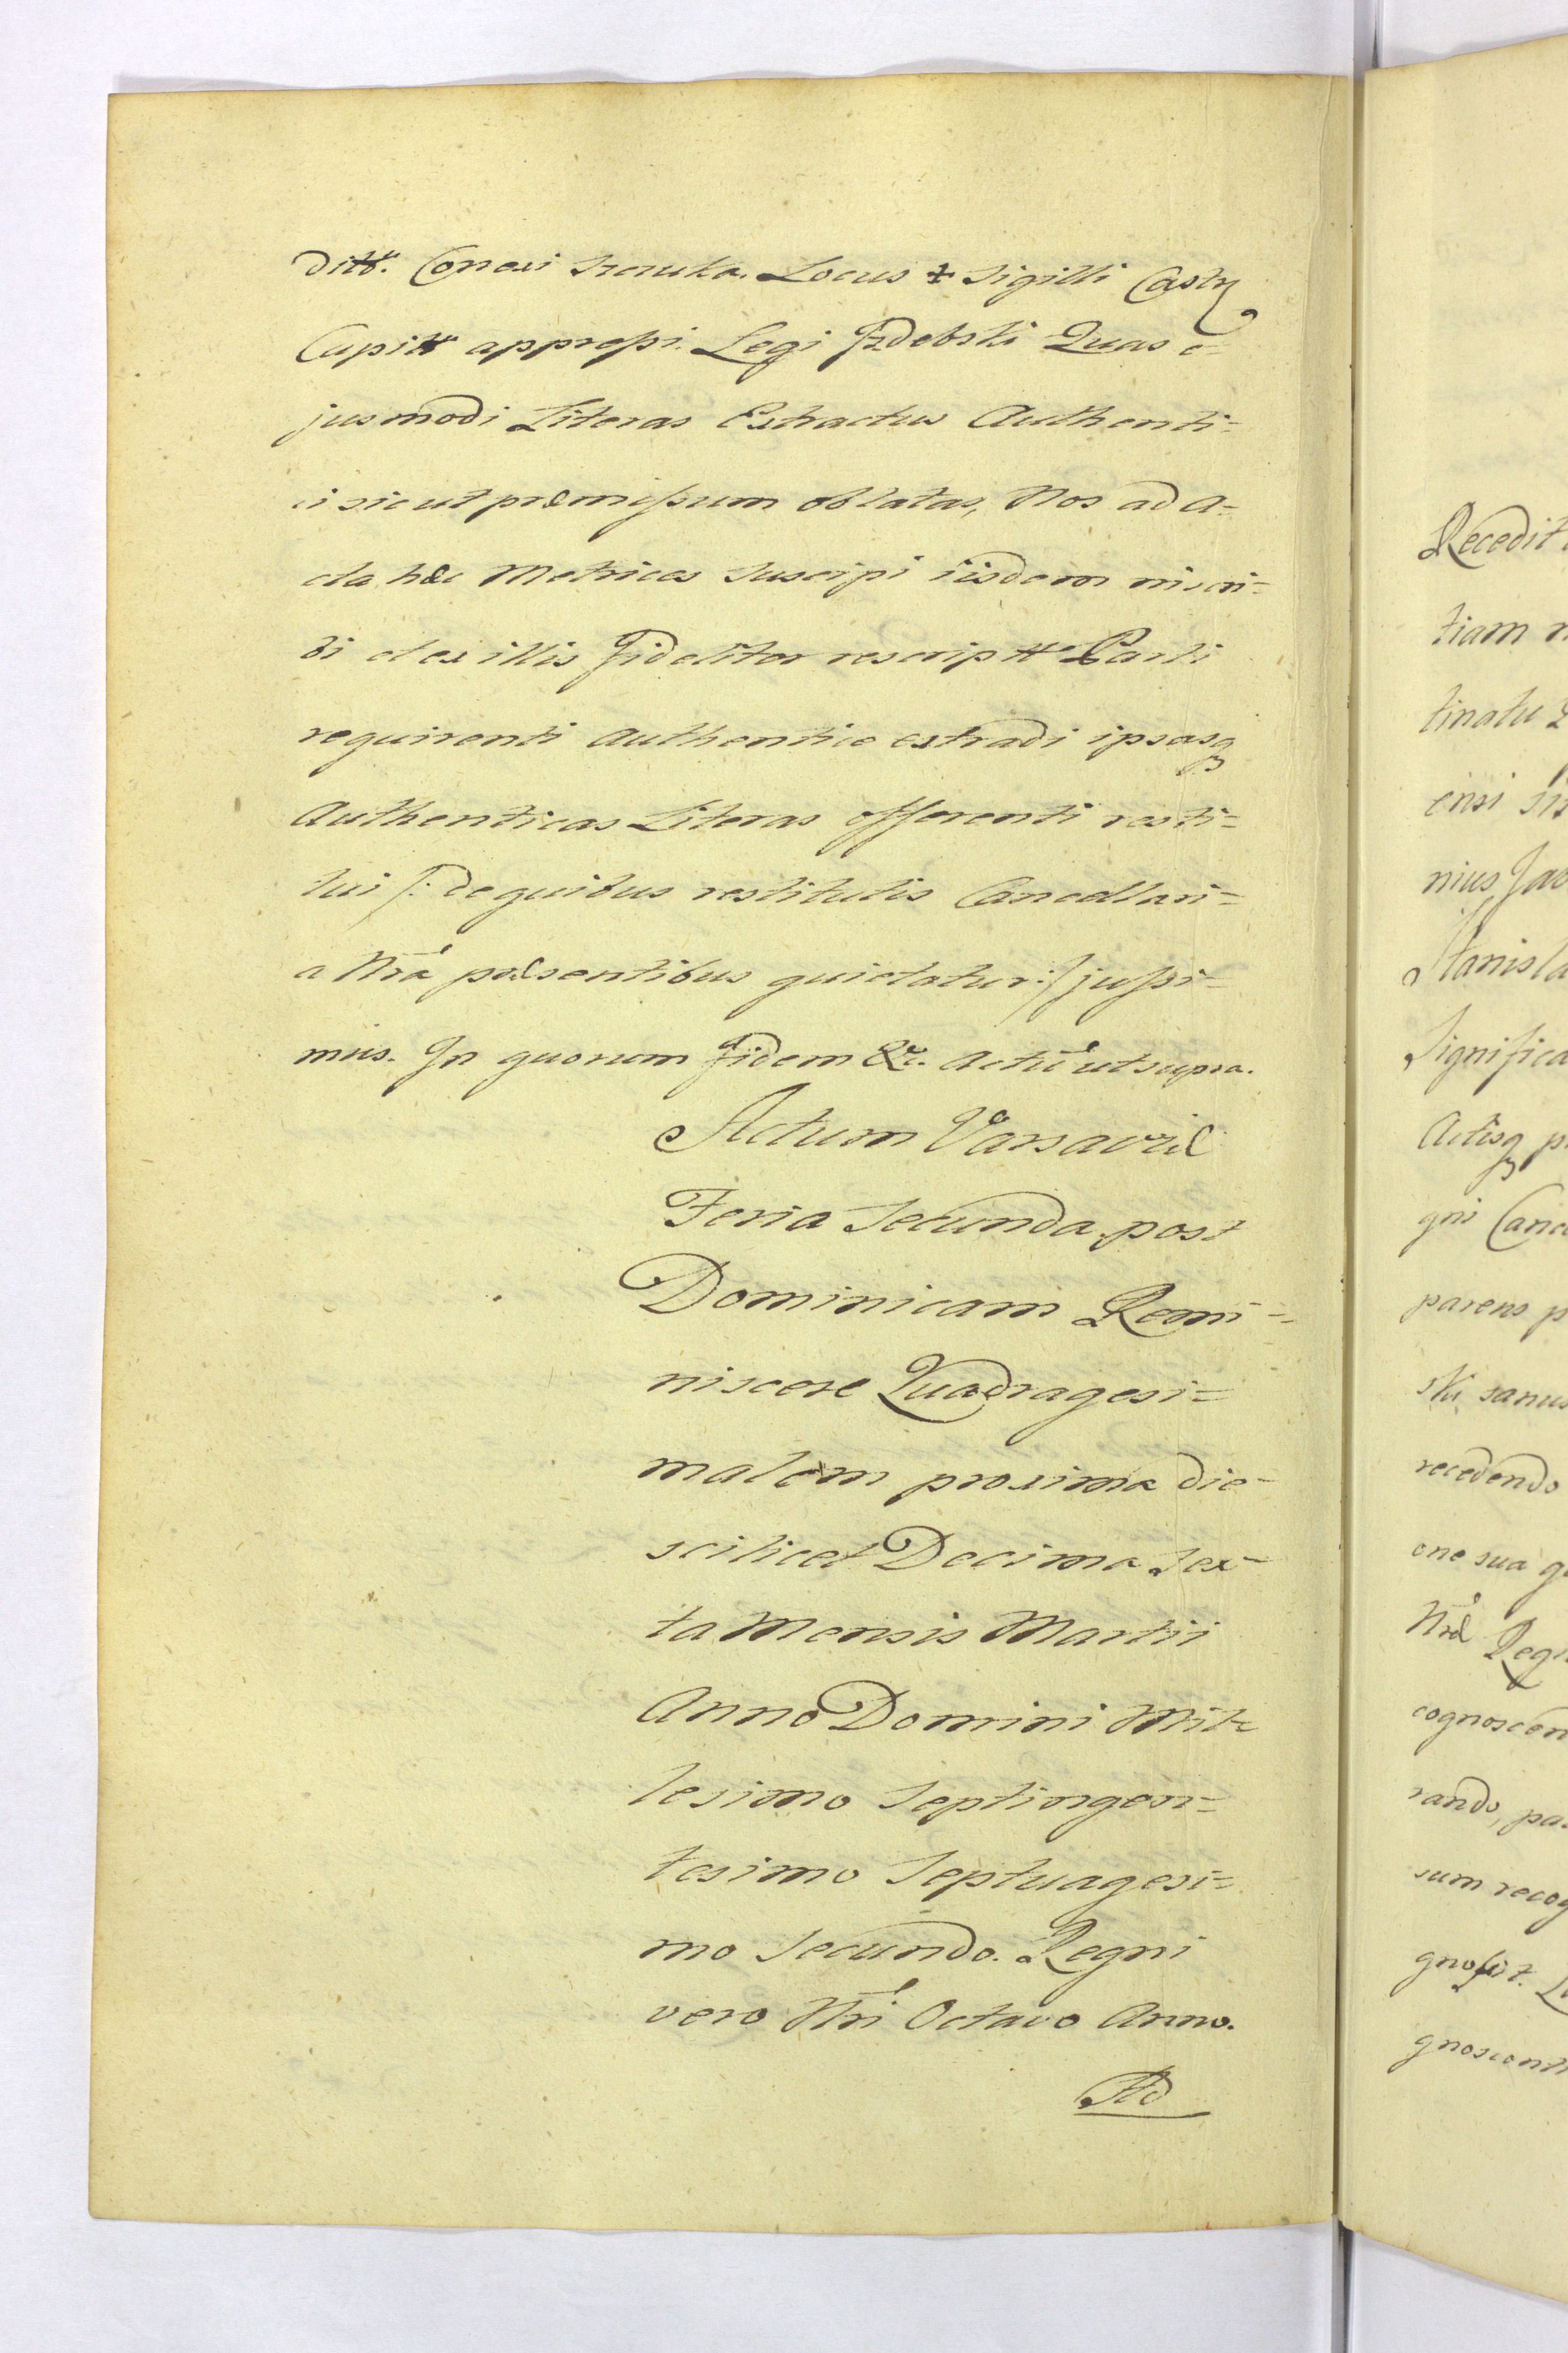 ditt. Correxi Szczuka. Locus ✝ Sigilli Castr
Capitt appressi. Legi Jzdebski Quas e=
jusmodi Literas Extractus Authenti=
ci sicut præmissum oblatas, Nos ad A=
cta hæc Metrices suscipi iisdem inscri=
bi et ex illis Fideliter rescriptt Parti
requirenti authentice extradi ipsasq
Authenticas Literas offerenti resti=
tui /: de quibus restitutis Cancellari=
a Nrã præsentibus quietatur :/ jussi=
mus. In quorum fidem &c. Actũ ut supra.
Actum Varsaviæ
Feria Secunda post
Dominicam Remi=
niscere Quadragesi=
malem proxima die
scilicet Decima Sex=
ta Mensis Martii
Anno Domini Mil=
lesimo Septingen=
tesimo Septuagesi=
mo Secundo. Regni
vero Nri Octavo Anno.
Ad
Recedit
tiam
tinatu
ensi
nius
Stanisla
Significa
Actisq
gni Canc
parens
ski sanus
recedendo
one sua
Nræ Regn
cognoscen
rando,
sum recog
gnosit.
gnoscenti